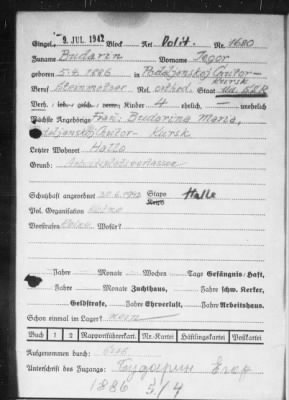 Eingel. 9. JUL. 1942 Block Art Polit. Nr. 1680
Zuname Budarin Vorname Jegor
geboren 5.4.1886 in Poddjanskoj Chutor-Kursk
Beruf Steinmetzer Rel. orthod. Staat UdSSR
Verh. led., gesch., verw. Kinder 4 ehelich — unehelich
Nächste Angehörige Frau: Budarina Maria,
Poddjanskoj Chutor - Kursk
Letzter Wohnort Halle
Grund: Arbeitsplatzverlassen
Schutzhaft angeordnet 20.6.1942 Stapo Halle
Pol. Organisation keine
Vorstrafen keine Wofür?
Jahre Monate Wochen Tage Gefängnis/Haft,
Jahre Monate Zuchthaus, Jahre schw. Kerker,
Geldstrafe, Jahre Ehrverluft, Jahre Arbeitshaus.
Schon einmal im Lager? nein
Buch 1 2 Rapportführerkart. Nr.-Kartei Häftlingskartei Postkartei
Aufgenommen durch:
Unterschrift des Zugangs: Бударин Егор
1886 5/4